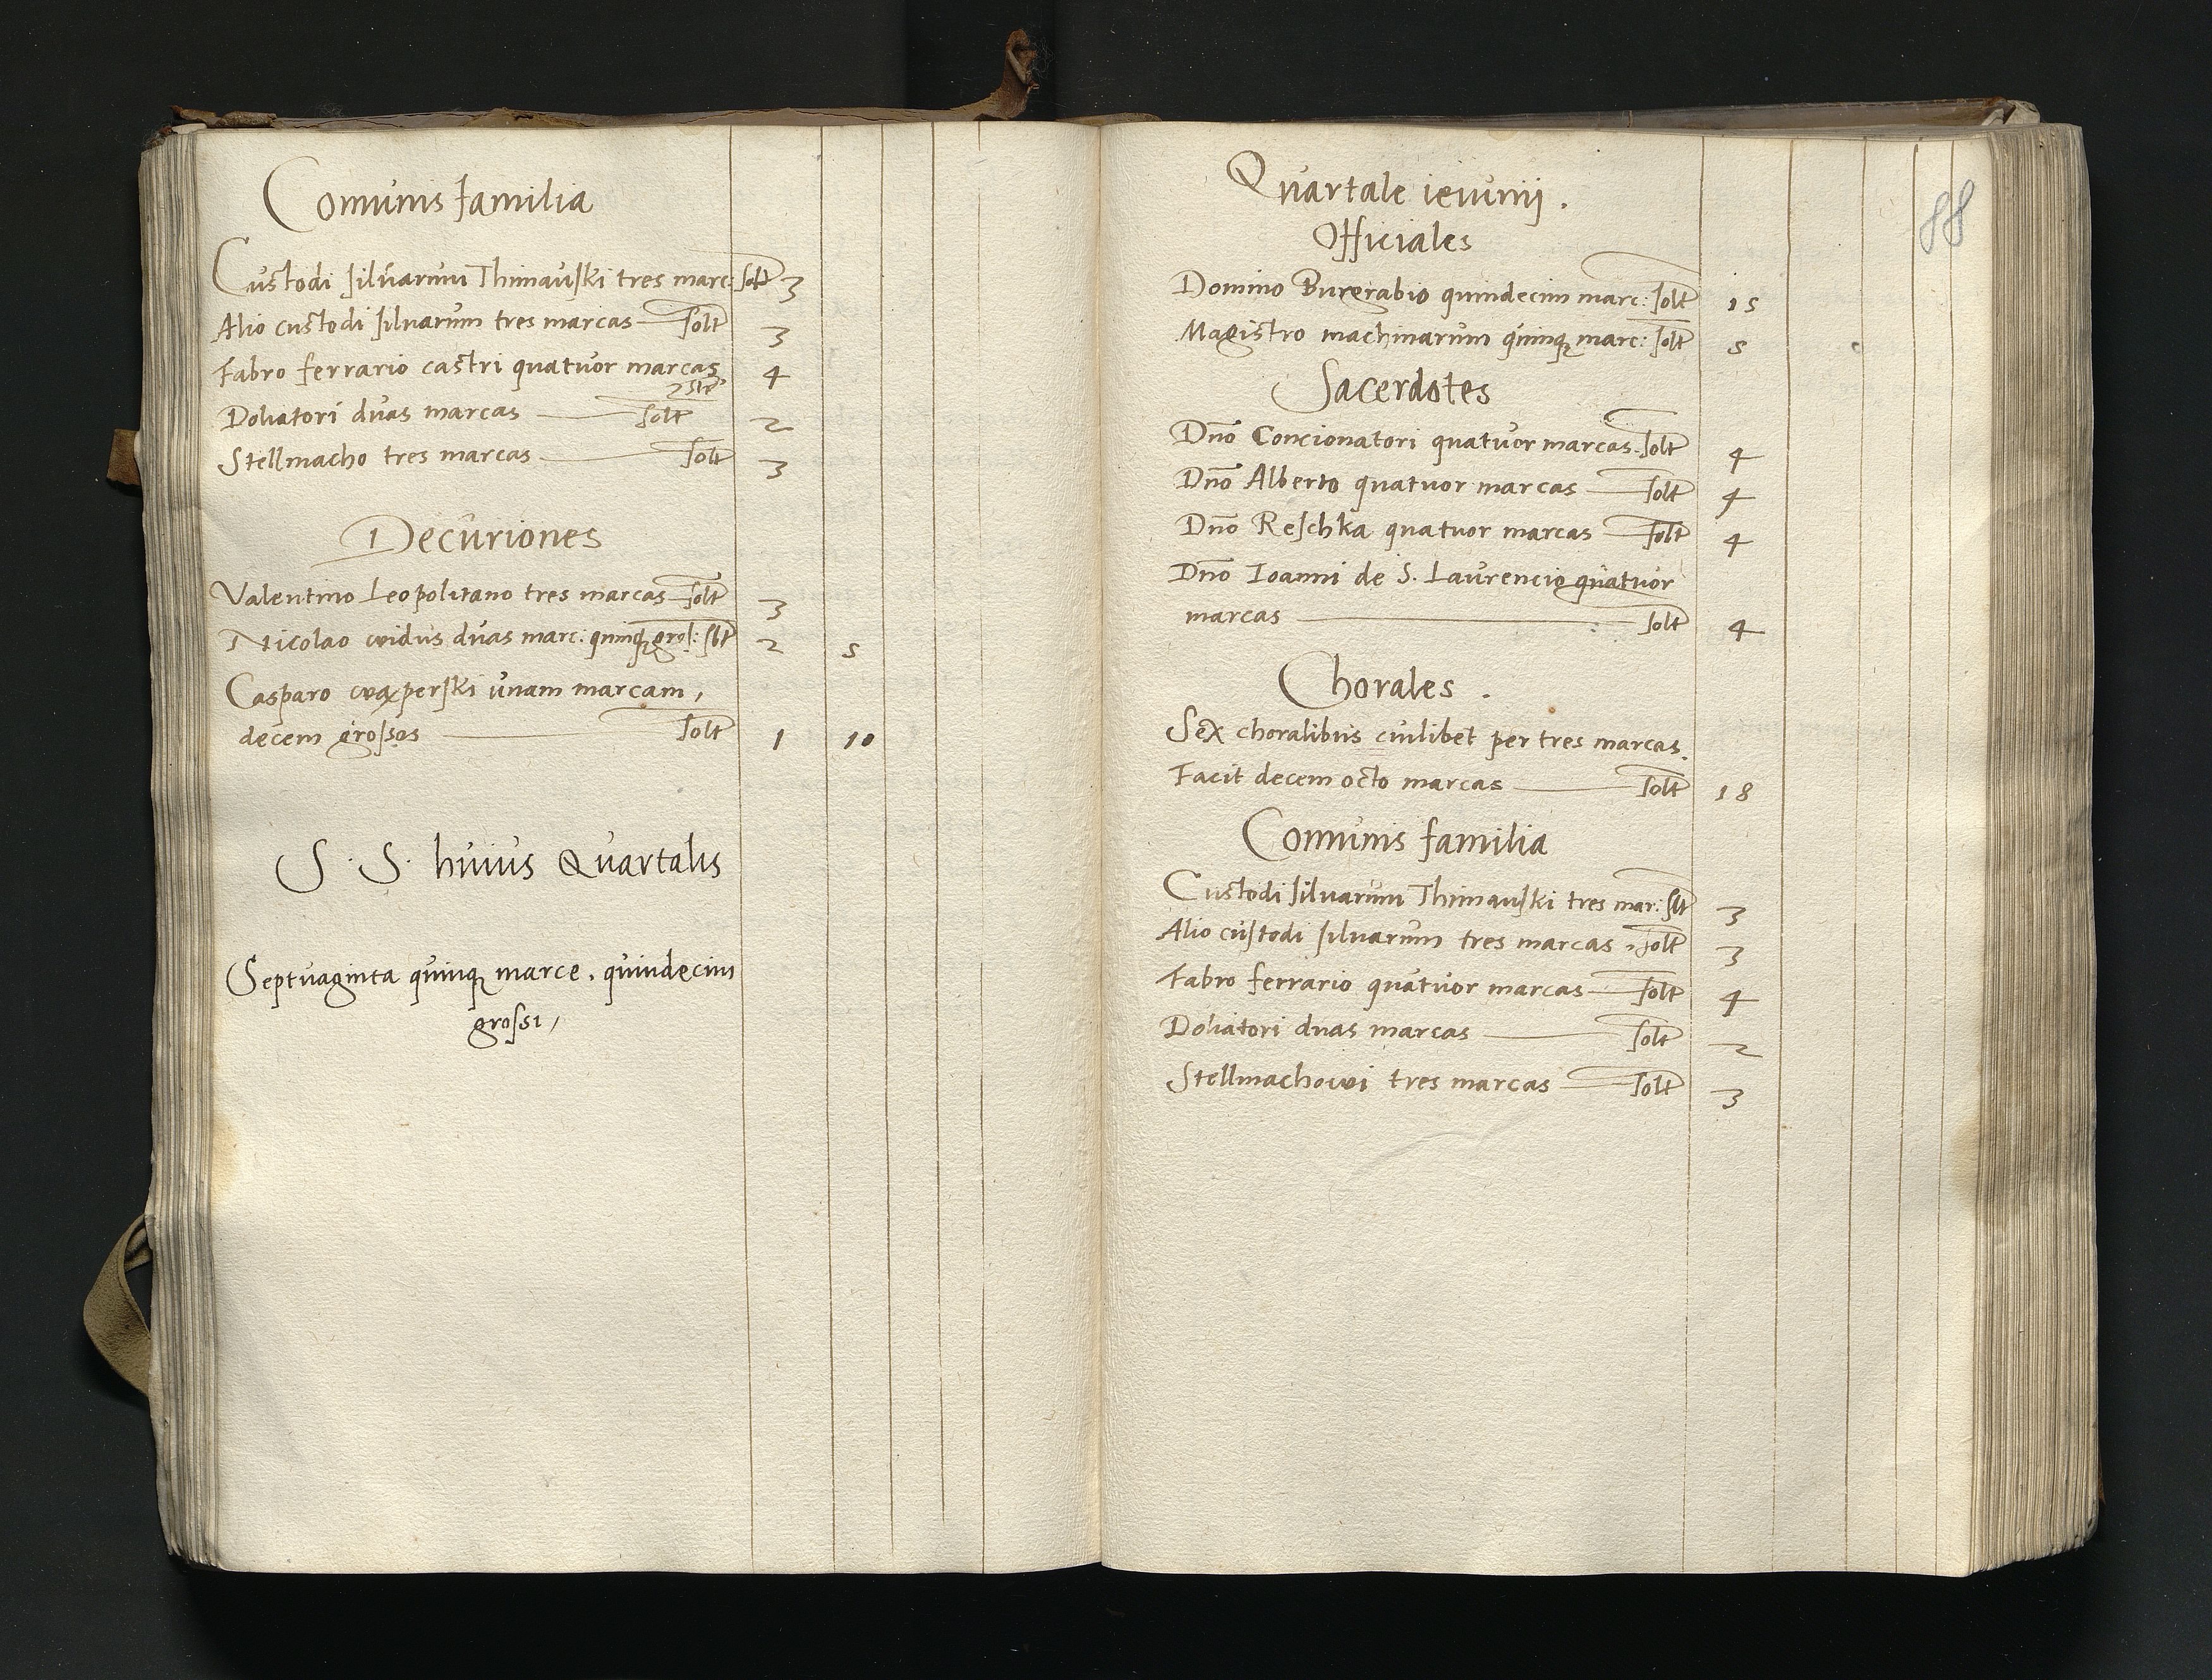 Comunis familia
Custodi silvarum Thimauski tres marc: solt 3
Alio custodi silvarum tres marcas solt 3
Fabro ferrario castri quatuor marcas 4
Doliatori duas marcas solt 2
Stellmacho tres marcas solt 3
Decuriones
Valentino Leopolitano tres marcas solt 3
Nicolao widus duas marc: quinq gros: slt 2 5
Casparo unam marcam,
decem grossos solt 1 10
S. S. huius Quartalis
Septuaginta quinq marce. quindecim
grossi,
88
Quartale ieiunij.
Officiales
Domino Burgrabio quindecim marc: solt 15
Magistro machinarum quinq marc: solt 5
Sacerdotes
Dno Concionatori quatuor marcas solt 4
Dno Alberto quatuor marcas solt 4
Dno Reschka quatuor marcas solt 4
Dno Ioanni de S. Laurencio quatuor
marcas solt 4
Chorales.
Sex choralibus cuilibet per tres marcas.
Facit decem octo marcas solt 18
Comunis familia
Custodi silvarum Thimauski tres mar: slt 3
Alio custodi silvarum tres marcas. solt 3
Fabro ferrario quatuor marcas solt 4
Doliatori duas marcas solt 2
Stellmachowi tres marcas solt 3